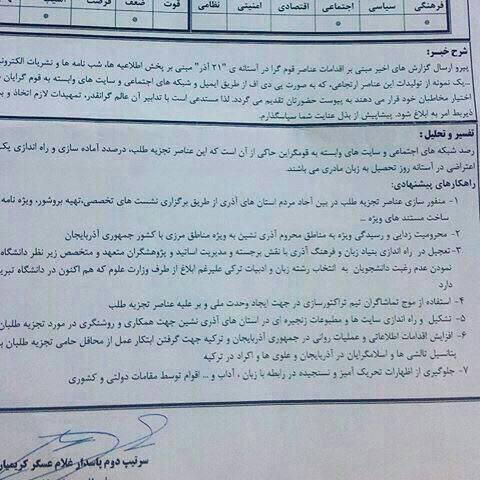 فرهنگی سیاسی اجتماعی اقتصادی امنیتی نظامی قوت ضعف فرصت
* * *
شرح خبر:
پیرو ارسال گزارش های اخیر مبنی بر اقدامات عناصر قوم گرا در آستانه ی "۲۱ آذر" مبنی بر پخش اطلاعیه ها، شب نامه ها و نشریات الکترونی
...یک نمونه از تولیدات این عناصر ارتجاعی، که به صورت پی دی اف از طریق ایمیل و شبکه های اجتماعی و سایت های وابسته به قوم گرایان
اختیار مخاطبان خود قرار می دهند به پیوست حضورتان تقدیم می گردد. لذا مستدعی است با تدابیر آن عالم گرانقدر، تمهیدات لازم اتخاذ و
ذیربط امر به ابلاغ شود. پیشاپیش از بذل عنایت شما سپاسگذارم.
تفسیر و تحلیل:
رصد شبکه های اجتماعی و سایت های وابسته به قومگراین حاکی از آن است که این عناصر تجزیه طلب، درصدد آماده سازی و راه اندازی یک
اعتراضی در آستانه روز تحصیل به زبان مادری می باشند.
راهکارهای پیشنهادی:
۱- منفور سازی عناصر تجزیه طلب در بین آحاد مردم استان های آذری از طریق برگزاری نشست های تخصصی،تهیه بروشور، ویژه نامه
ساخت مستند های ویژه ...
۲- محرومیت زدایی و رسیدگی ویژه به مناطق محروم آذری نشین به ویژه مناطق مرزی با کشور جمهوری آذربایجان
۳- تعجیل در راه اندازی بنیاد زبان و فرهنگ آذری با نقش برجسته و مدیریت اساتید و پژوهشگران متعهد و متخصص زیر نظر دانشگاه
نمودن عدم رغبت دانشجویان به انتخاب رشته زبان و ادبیات ترکی علیرغم ابلاغ از طرف وزارت علوم که هم اکنون در دانشگاه تبری
دارد
۴- استفاده از موج تماشاگران تیم تراکتورسازی در جهت ایجاد وحدت ملی و بر علیه عناصر تجزیه طلب
۵- تشکیل و راه اندازی سایت ها و مطبوعات زنجیره ای در استان های آذری نشین جهت همکاری و روشنگری در مورد تجزیه طلبان
۶- افزایش اقدامات اطلاعاتی و عملیات روانی در جمهوری آذربایجان و ترکیه جهت گرفتن ابتکار عمل از محافل حامی تجزیه طلبان
پتانسیل تالشی ها و اسلامگرایان در آذربایجان و علوی ها و اکراد در ترکیه
۷- جلوگیری از اظهارات تحریک آمیز و نسنجیده در رابطه با زبان ، آداب و ... اقوام توسط مقامات دولتی و کشوری
سرتیپ دوم پاسدار غلام عسگر کریمیان